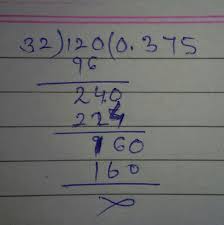 32)120(0.375
96
240
224
160
160
×